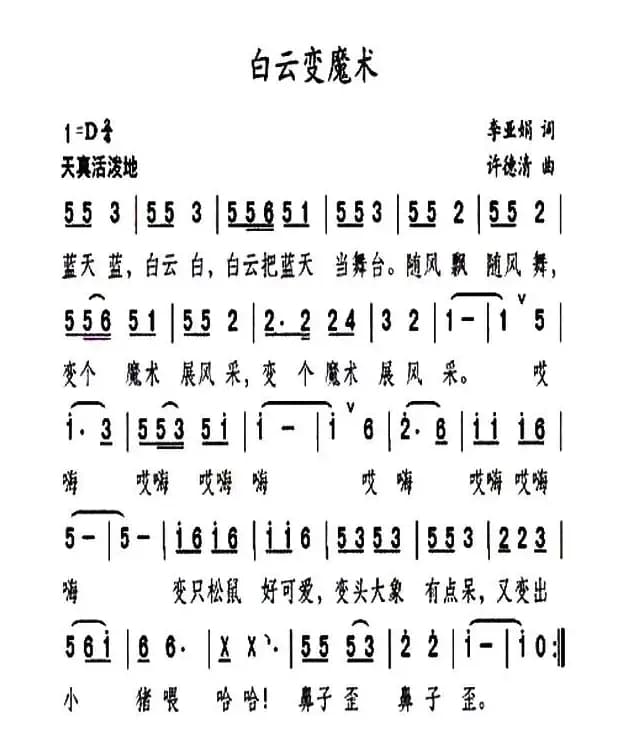 白云变魔术
1=D 2/4 李亚娟 词
天真活泼地 许德清 曲
5 5 3 | 5 5 3 | 5 5 6 5 1 | 5 5 3 | 5 5 2 | 5 5 2 |
蓝天 蓝，白云 白，白云把蓝天 当舞台。随风飘 随风舞，
5 5 6 5 1 | 5 5 2 | 2· 2 2 4 | 3 2 | 1 - | 1 ∨ 5 |
变个 魔术 展风采，变 个魔术 展风采。 哎
i· 3 | 5 5 3 5 i | i - | i ∨ 6 | 2· 6 | i i i 6 |
嗨 哎嗨 哎嗨 嗨 哎 嗨 哎嗨哎嗨
5 - | 5 - | i 6 i 6 | i i 6 | 5 3 5 3 | 5 5 3 | 2 2 3 |
嗨 变只松鼠 好可爱，变头大象 有点呆，又变出
5 6 i | 6 6· | X X | 5 5 5 3 | 2 2 | i - | i 0 :||
小 猪喂 哈哈！鼻子歪 鼻子歪。